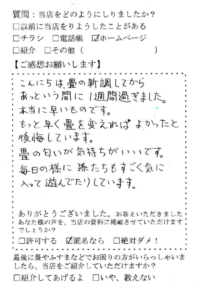 質問：当店をどのようにしりましたか？
□以前に当店をりようしたことがある
□チラシ　□電話帳　☑ホームページ
□紹介　□その他（　　　　　　）
【ご感想お願いします】
こんにちは、畳の新調してから
あっという間に１週間過ぎました。
本当に早いものです。
もっと早く畳を変えれば よかったと
後悔しています。
畳の匂いが気持ちがいいです。
毎日の様に 孫たちもすごく気に
入って遊んでたりしています。
ありがとうございました。お答えいただきました
あなた様の声を、当店の資料に掲載させていただけます
でしょうか？
□許可する　☑匿名なら　□絶対ダメ！
最後に畳やふすまなどでお困りの方がいらっしゃいま
したら、当店をご紹介していただけますか？
□紹介してあげるよ　□いや、教えない